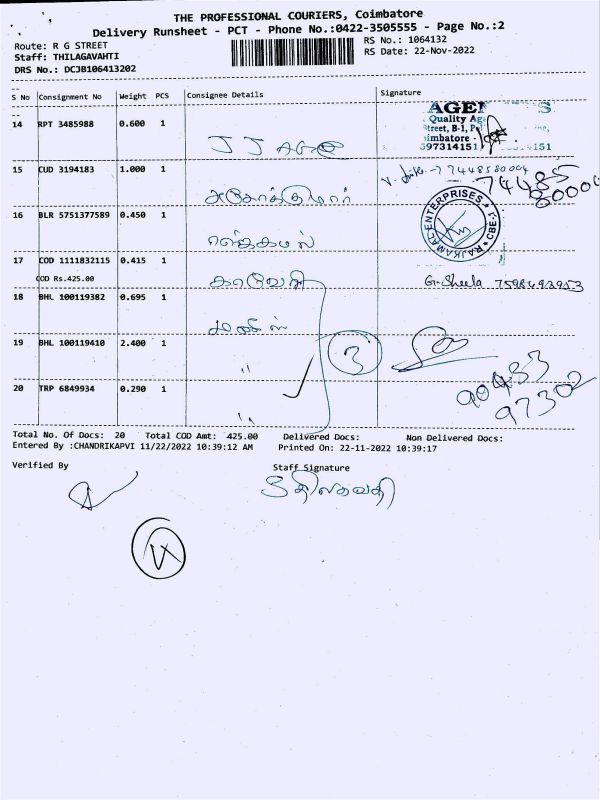 THE PROFESSIONAL COURIERS, Coimbatore
Delivery Runsheet - PCT - Phone No.:0422-3505555 - Page No.:2
Route: R G STREET
RS No.: 1064132
Staff: THILAGAVAHTI
RS Date: 22-Nov-2022
DRS No.: DCJB106413202
S No Consignment No Weight PCS Consignee Details Signature
14 RPT 3485988 0.600 1 J J AGE
AGEN S
Quality Ag
Street, B-1, P
imbatore -
597314151 151
15 CUD 3194183 1.000 1 அசோக்குமார்
7448580004
74485
80004
16 BLR 5751377589 0.450 1
RAJKAMAL ENTERPRISES * CBE-1 *
17 COD 1111832115 0.415 1 காவேரி
COD Rs.425.00
G. Sheela 7598493953
18 BHL 100119382 0.695 1
19 BHL 100119410 2.400 1 "
3
90483
97302
20 TRP 6849934 0.290 1 "
Total No. Of Docs: 20 Total COD Amt: 425.00 Delivered Docs: Non Delivered Docs:
Entered By :CHANDRIKAPVI 11/22/2022 10:39:12 AM Printed On: 22-11-2022 10:39:17
Verified By Staff Signature
திலகவதி